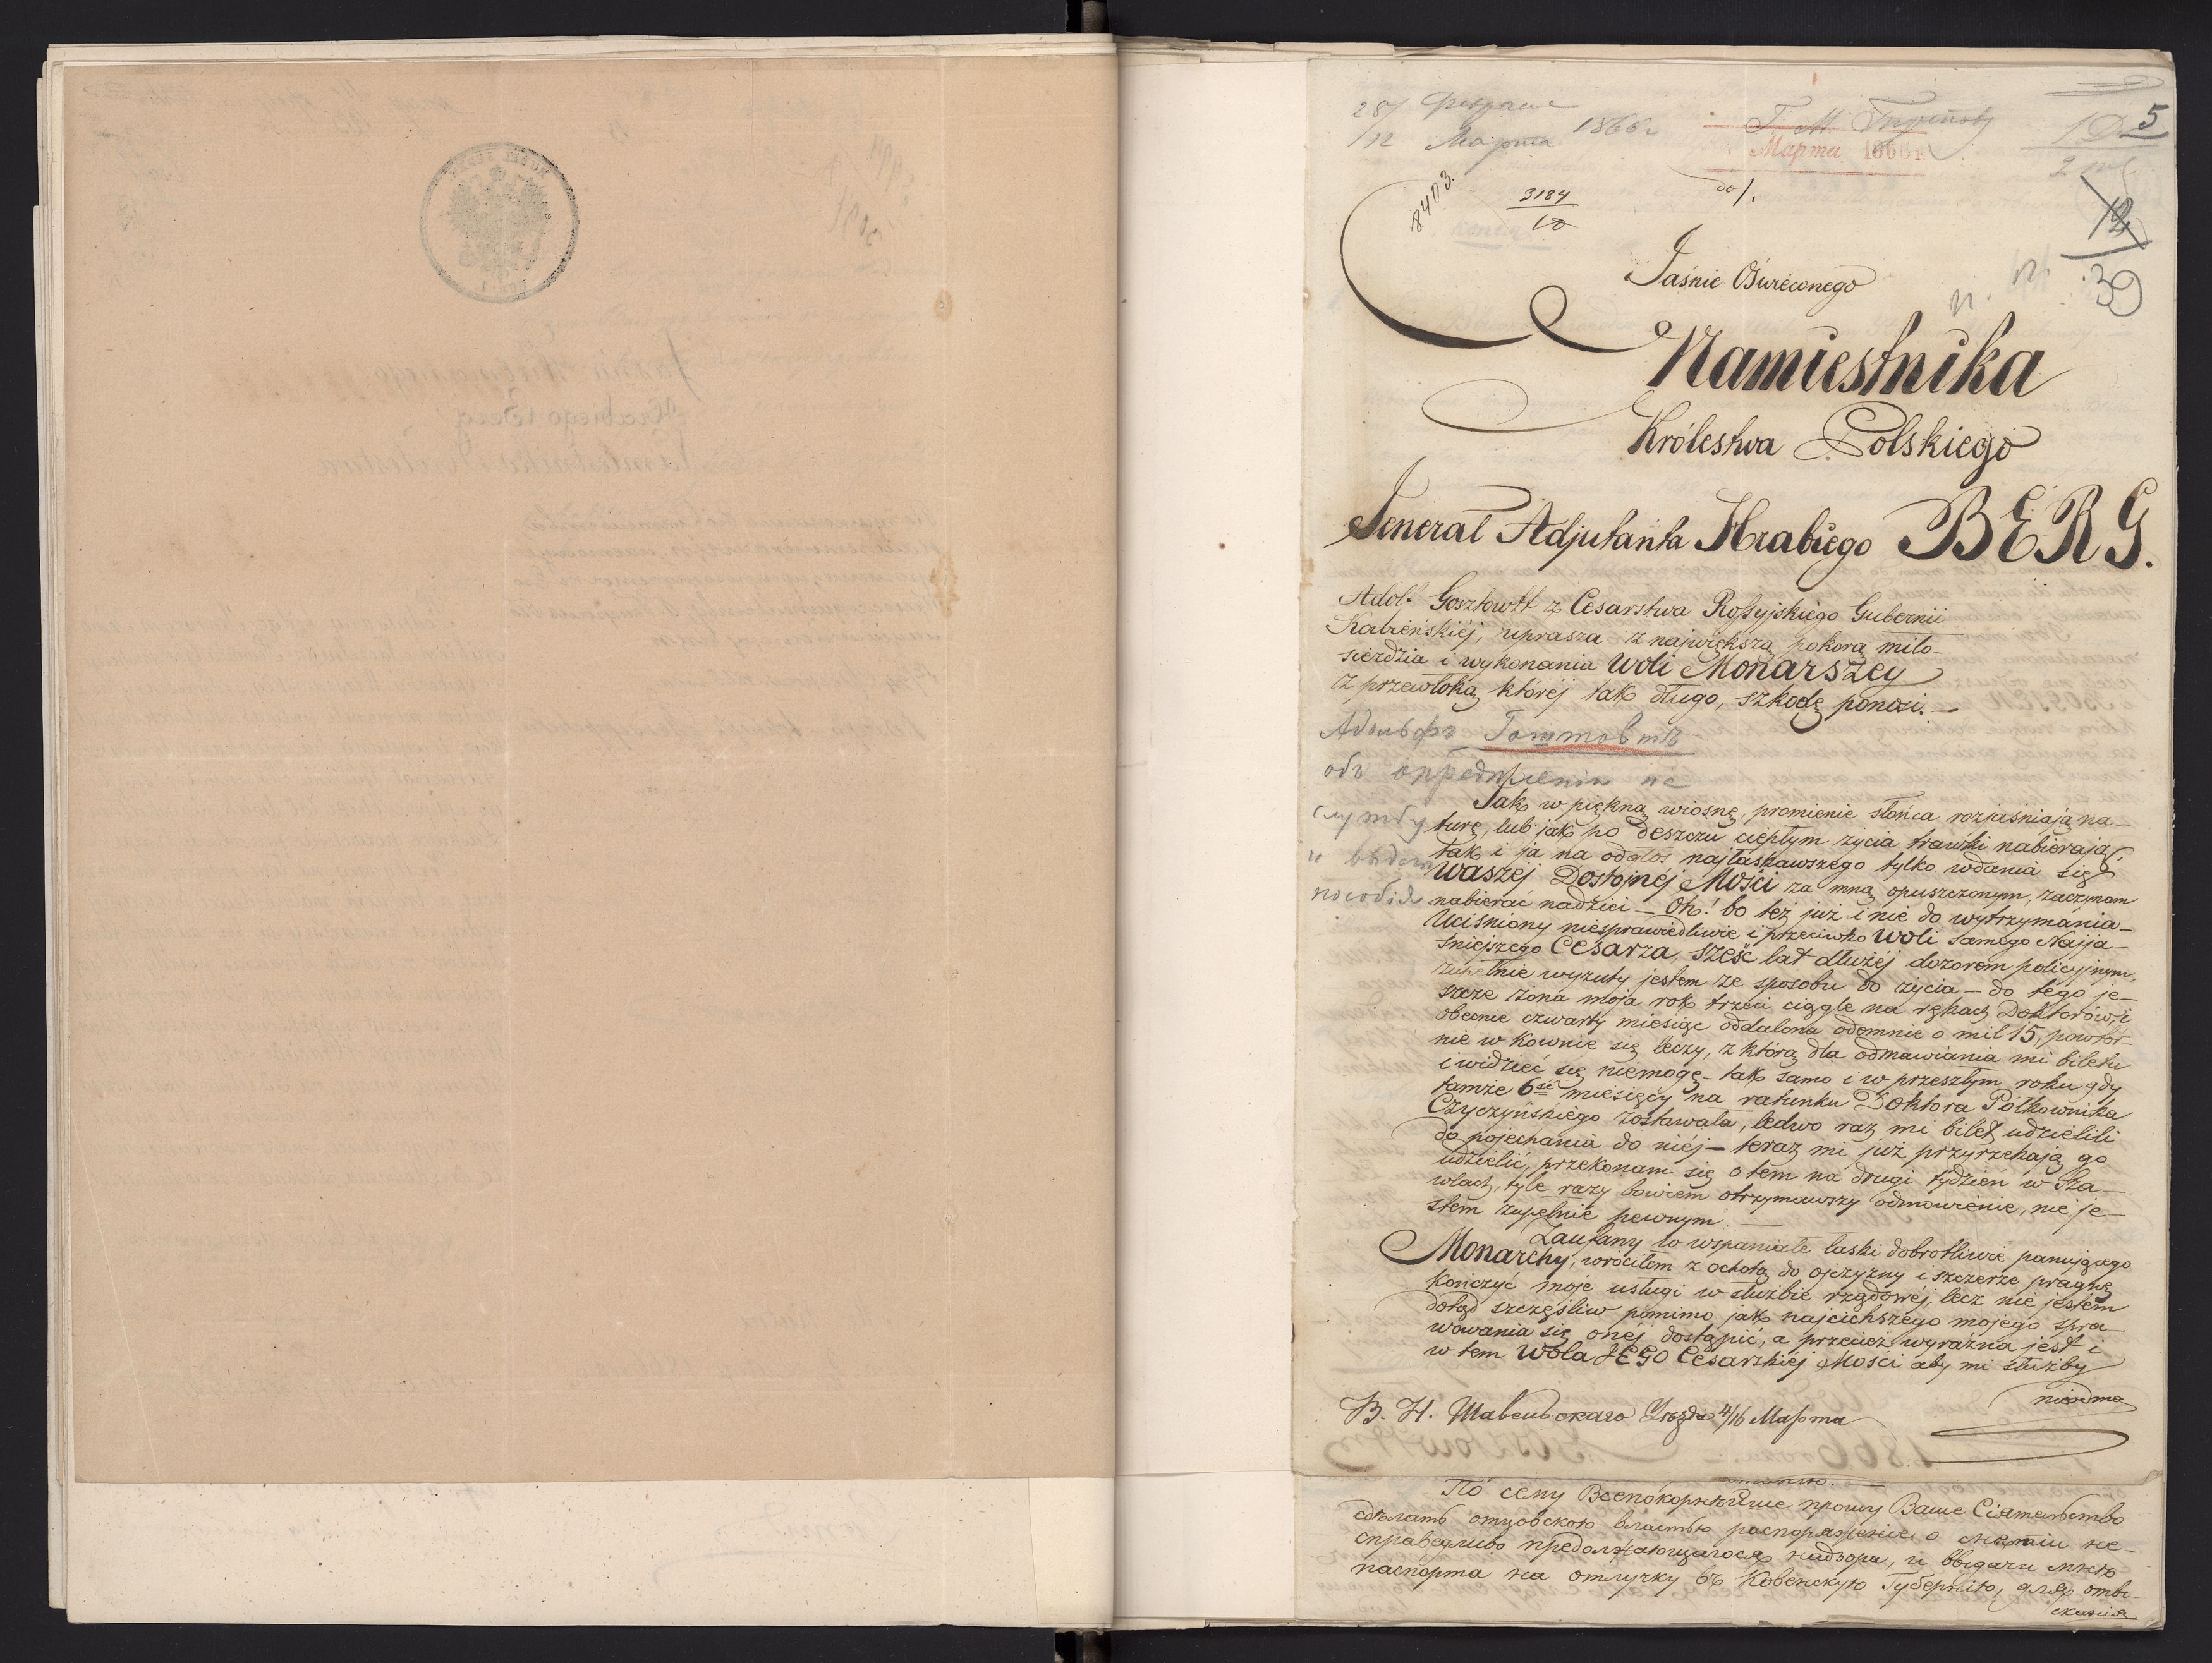 28/ Февраля
/12 Марта 1866 г
5
Марта 1866 г
8403.
3184
10
do /.
12
39
Jaśnie Oświeconego
Namiestnika
Królestwa Polskiego
Jenerał Adjutanta Hrabiego BERG.
Adolf Gosztowtt z Cesarstwa Rossyjskiego Gubernii
Kowieńskiéj, uprasza z największą pokorą miło-
sierdzia i wykonania Woli Monarszey
z przewłoką któréj tak długo, szkodę ponosi. —
Адольфъ Гоштовтъ
объ опредѣленіи на
службу
и выдачи
пособія
Jak w piękną wiosnę, promienie słońca rozjaśniają na-
turę, lub jak po deszczu ciepłym życia trawki nabierają;
tak i ja na odgłos najłaskawszego tylko wdania się
Waszéj Dostojnéj Mości za mną opuszczonym, zaczynam
nabierać nadziei — Oh! bo też już i nie do wytrzymania —
Uciśniony niesprawiedliwie i przeciwko Woli samego Najja-
śniejszego Cesarza, sześć lat dłużéj dozorem policyjnym,
zupełnie wyzuty jestem ze sposobu do życia — do tego je-
szcze żona moja rok trzeci ciągle na rękach Doktorów, i
obecnie czwarty miesiąc oddalona odemnie o mil 15, powtór-
nie w Kownie się leczy, z którą dla odmawiania mi biletu
i widzieć się niemogę — tak samo i w przeszłym roku gdy
tamże 6ść miesięcy na ratunku Doktora Półkownika
Czyczyńskiego zostawała, ledwo raz mi bilet udzielili
do pojechania do niéj — teraz mi już przyrzekają go
udzielić, przekonam się o tem na drugi tydzień w Sza-
wlach, tyle razy bowiem otrzymawszy odmówienie, nie je-
stem zupełnie pewnym. —
Zaufany w wspaniałe łaski dobrotliwie panującego
Monarchy, wróciłem z ochotą do ojczyzny i szczerze pragnę
kończyć moje usługi w służbie rządowéj, lecz nie jestem
dotąd szczęśliw pomimo, jak najcichszego mojego spra-
wowania się onéj dostąpić, a przecież wyraźna jest i
w tem Wola JEGO Cesarskiéj Mości aby mi służby
nieodma
В. Н. Шавельскаго Уѣзда 4/16 Марта
По сему Всепокорнѣйше прошу Ваше Сіятельство
сдѣлать отцовскою властью распоряженіе о снятіи не-
справедливо предолжающагося надзора, и выдачи мнѣ
паспорта на отлучку въ Ковенскую Губернію, для оты-
сканія